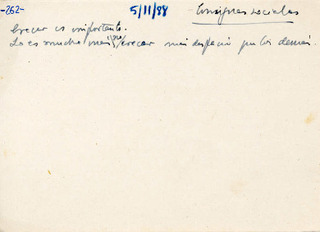 -262-
5/11/88
Consignas sociales
Crecer es importante.
Lo es mucho más, crecer más despacio que los demás.